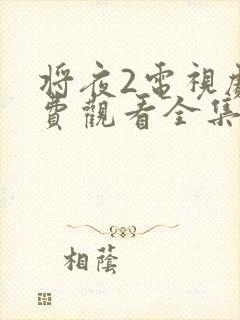 将夜2電視劇
費觀看全集
相蔭